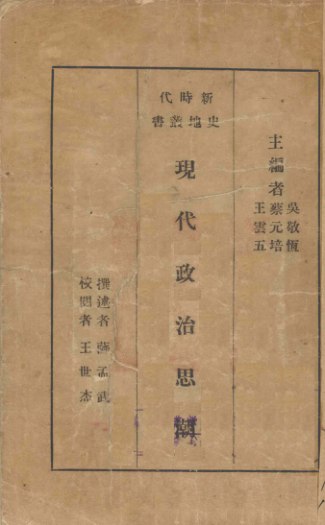 主編者
吳敬恆
蔡元培
王雲五
新時代
史地叢書
現代政治思潮
撰述者 薩孟武
校閱者 王世杰